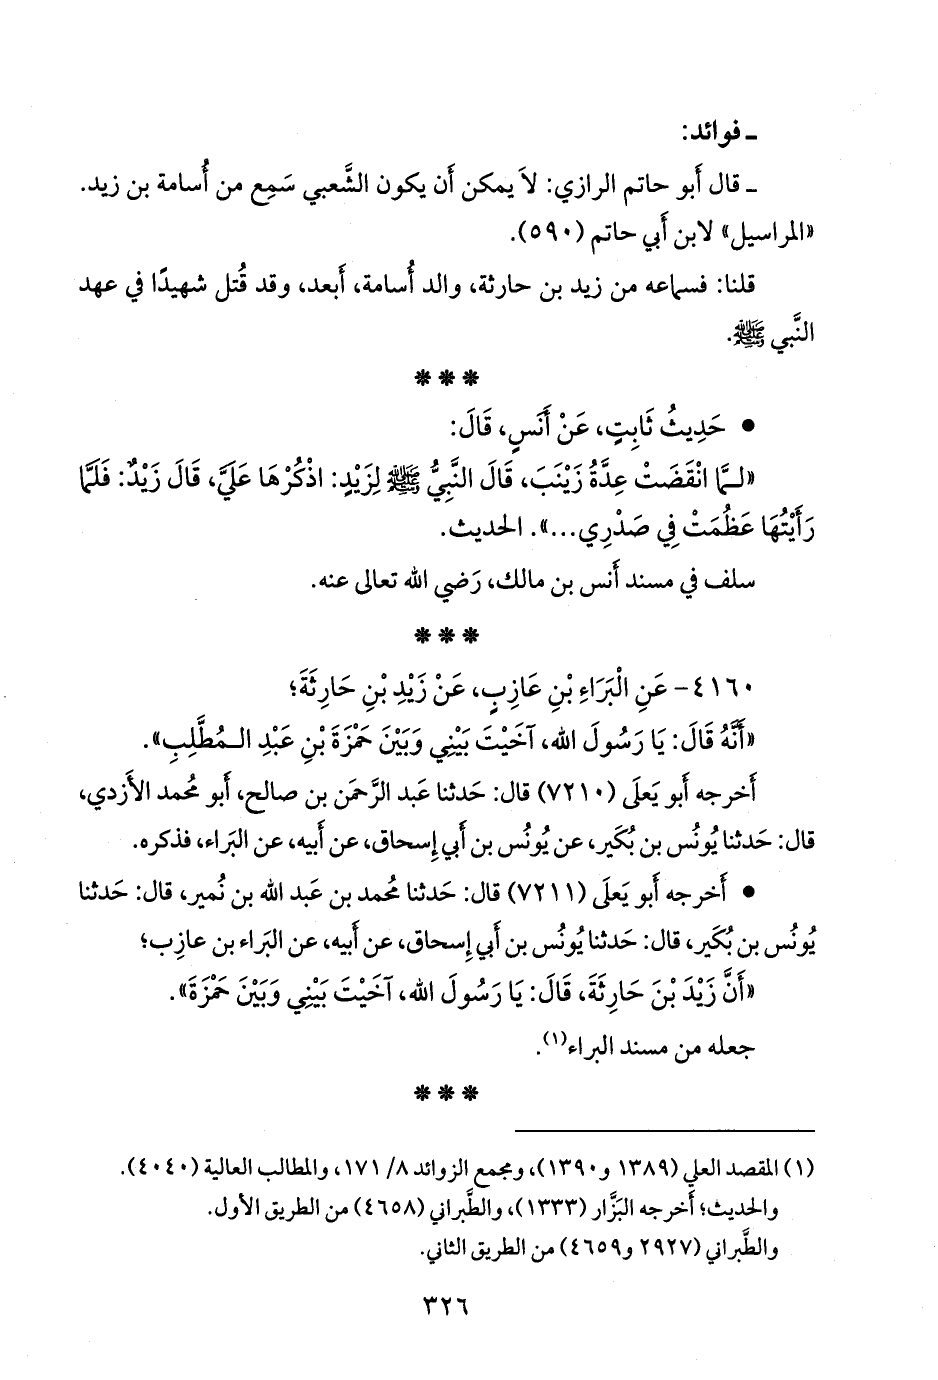 ـ فوائد:
ـ قال أَبو حاتم الرازي: لاَ يمكن أَن يكون الشَّعبي سَمِع من أُسامة بن زيد.
«المراسيل» لابن أَبي حاتم (٥٩٠).
قلنا: فسماعه من زيد بن حارثة، والد أُسامة، أَبعد، وقد قُتل شهيدًا في عهد
النَّبي ﷺ.
* * *
• حَدِيثُ ثَابِتٍ، عَنْ أَنَسٍ، قَالَ:
«لـمَّا انْقَضَتْ عِدَّةُ زَيْنَبَ، قَالَ النَّبِيُّ ﷺ لِزَيْدٍ: اذْكُرْهَا عَلَيَّ، قَالَ زَيْدٌ: فَلَمَّا
رَأَيْتُهَا عَظُمَتْ فِي صَدْرِي...». الحديث.
سلف في مسند أَنس بن مالك، رَضي الله تعالى عنه.
* * *
٤١٦٠- عَنِ الْبَرَاءِ بْنِ عَازِبٍ، عَنْ زَيْدِ بْنِ حَارِثَةَ؛
«أَنَّهُ قَالَ: يَا رَسُولَ الله، آخَيْتَ بَيْنِي وَبَيْنَ حَمْزَةَ بْنِ عَبْدِ الـمُطَّلِبِ».
أَخرجه أَبو يَعلَى (٧٢١٠) قال: حَدثنا عَبد الرَّحمَن بن صالح، أَبو مُحمد الأَزدي،
قال: حَدثنا يُونُس بن بُكَير، عن يُونُس بن أَبي إِسحاق، عن أَبيه، عن البَراء، فذكره.
• أَخرجه أَبو يَعلَى (٧٢١١) قال: حَدثنا مُحمد بن عَبد الله بن نُمير، قال: حَدثنا
يُونُس بن بُكَير، قال: حَدثنا يُونُس بن أَبي إِسحاق، عن أَبيه، عن البَراء بن عازِب؛
«أَنَّ زَيْدَ بْنَ حَارِثَةَ، قَالَ: يَا رَسُولَ الله، آخَيْتَ بَيْنِي وَبَيْنَ حَمْزَةَ».
جعله من مسند البراء(١).
* * *
(١) المقصد العلي (١٣٨٩ و١٣٩٠)، ومجمع الزوائد ٨/ ١٧١، والمطالب العالية (٤٠٤٠).
والحديث؛ أخرجه البَزَّار (١٣٣٣)، والطَّبراني (٤٦٥٨) من الطريق الأول.
والطَّبراني (٢٩٢٧ و٤٦٥٩) من الطريق الثاني.
٣٢٦